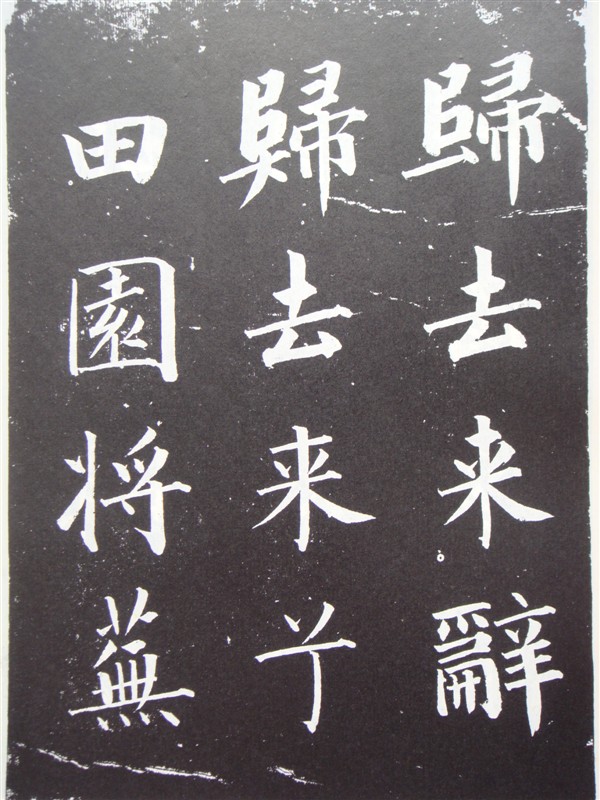 歸去来辭
歸去来兮
田園将蕪